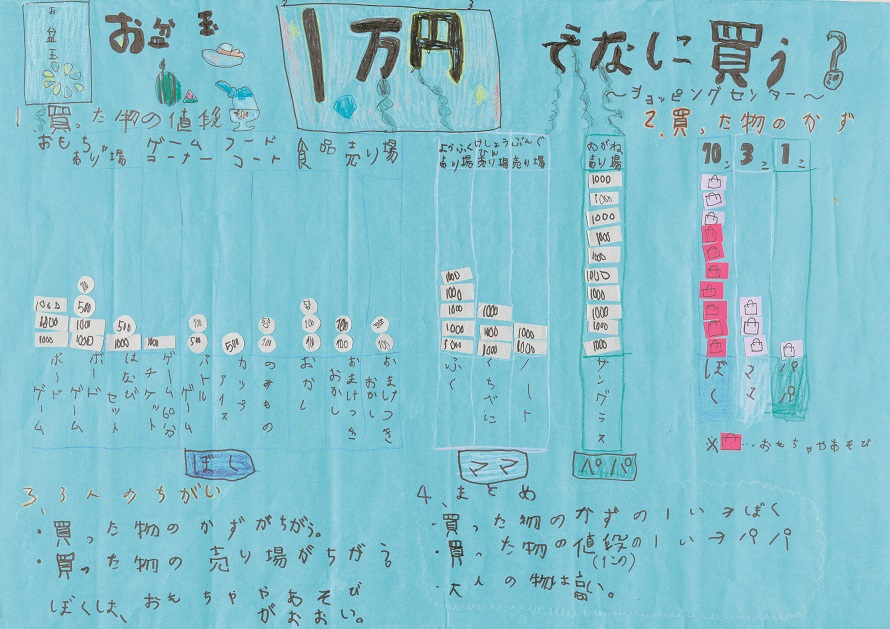 お盆玉
お盆玉
1万円
でなにに買う?
~ショッピングセンター~
1、買った物の値段
おもちゃ売り場
ゲームコーナー
フードコート
食品売り場
ようふく売り場
けしょうひん売り場
ぶんぐ売り場
めがね売り場
2、買った物のかず
10コ
3こ
1こ
ボードゲーム
ボードゲーム
はなびセット
ゲーム60分チケット
バトルゲーム
カップアイス
のみもの
おかし
おまけつきおかし
おまけつきおかし
ふく
くちべに
ノート
サングラス
ぼく
ママ
パパ
ぼく
ママ
パパ
※…おもちゃやあそび
3、3人のちがい
・買った物のかずがちがう。
・買った物の売り場がちがう。
ぼくは、おもちゃやあそび
がおおい。
4、まとめ
・買った物のかずの1い→ぼく
・買った物の値段の1い→パパ
(1こ)
・大人の物は高い。